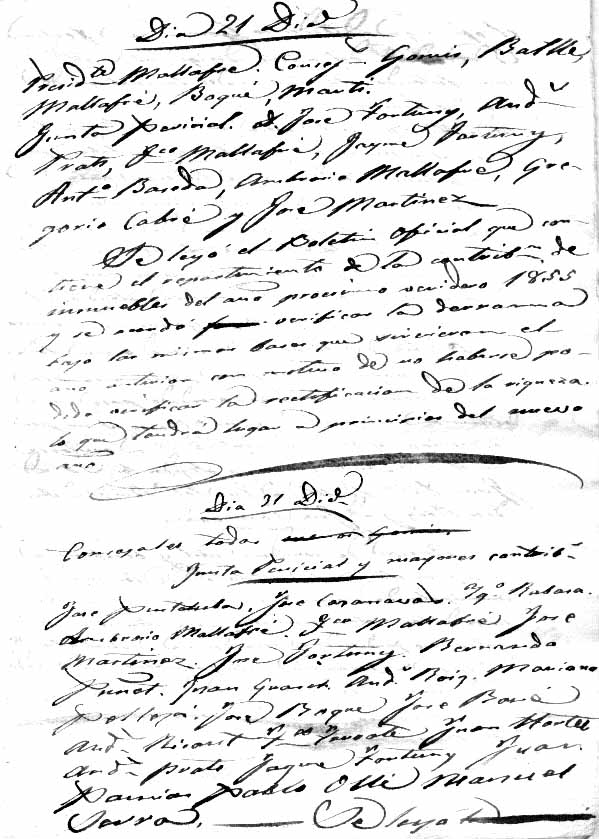 Dia 21 Dic.
Presid.te Mallafré. Consej.s Gomis, Batlle,
Mallafré, Boqué, Marti.
Junta Pericial. D. José Fortuny, And.s
Prats, Fco Mallafré, Jayme Fortuny,
Ant.o Baseda, Ambrosio Mallafré, Gre-
gorio Cabré y José Martinez
Se leyó el Boletin Oficial que con-
tiene el repartimiento de la contrib.n de
inmuebles del año procsimo venidero 1855
y se acordó verificar la derrama
bajo las mismas bases que sirvieron el
año anterior con motivo de no haberse po-
dido verificar la rectificacion de la riqueza.
lo que tendrá lugar a principios del nuevo
año.
Dia 31 Dic.
Concejales todos menos Gomis
Junta Pericial y mayores contrib.s
José José Casanovas. Rabasa.
Ambrosio Mallafré. Fco Mallafré José
Martinez José Fortuny. Bernardo
Punet. Juan Guasch. And.s Roig. Mariano
Pellejá. José Boqué José Boné
And.s Ricart Juan Hortet
And.s Prats Jayme Fortuny Juan
Pamies Pablo Ollé Manuel
Serra. Se leyó